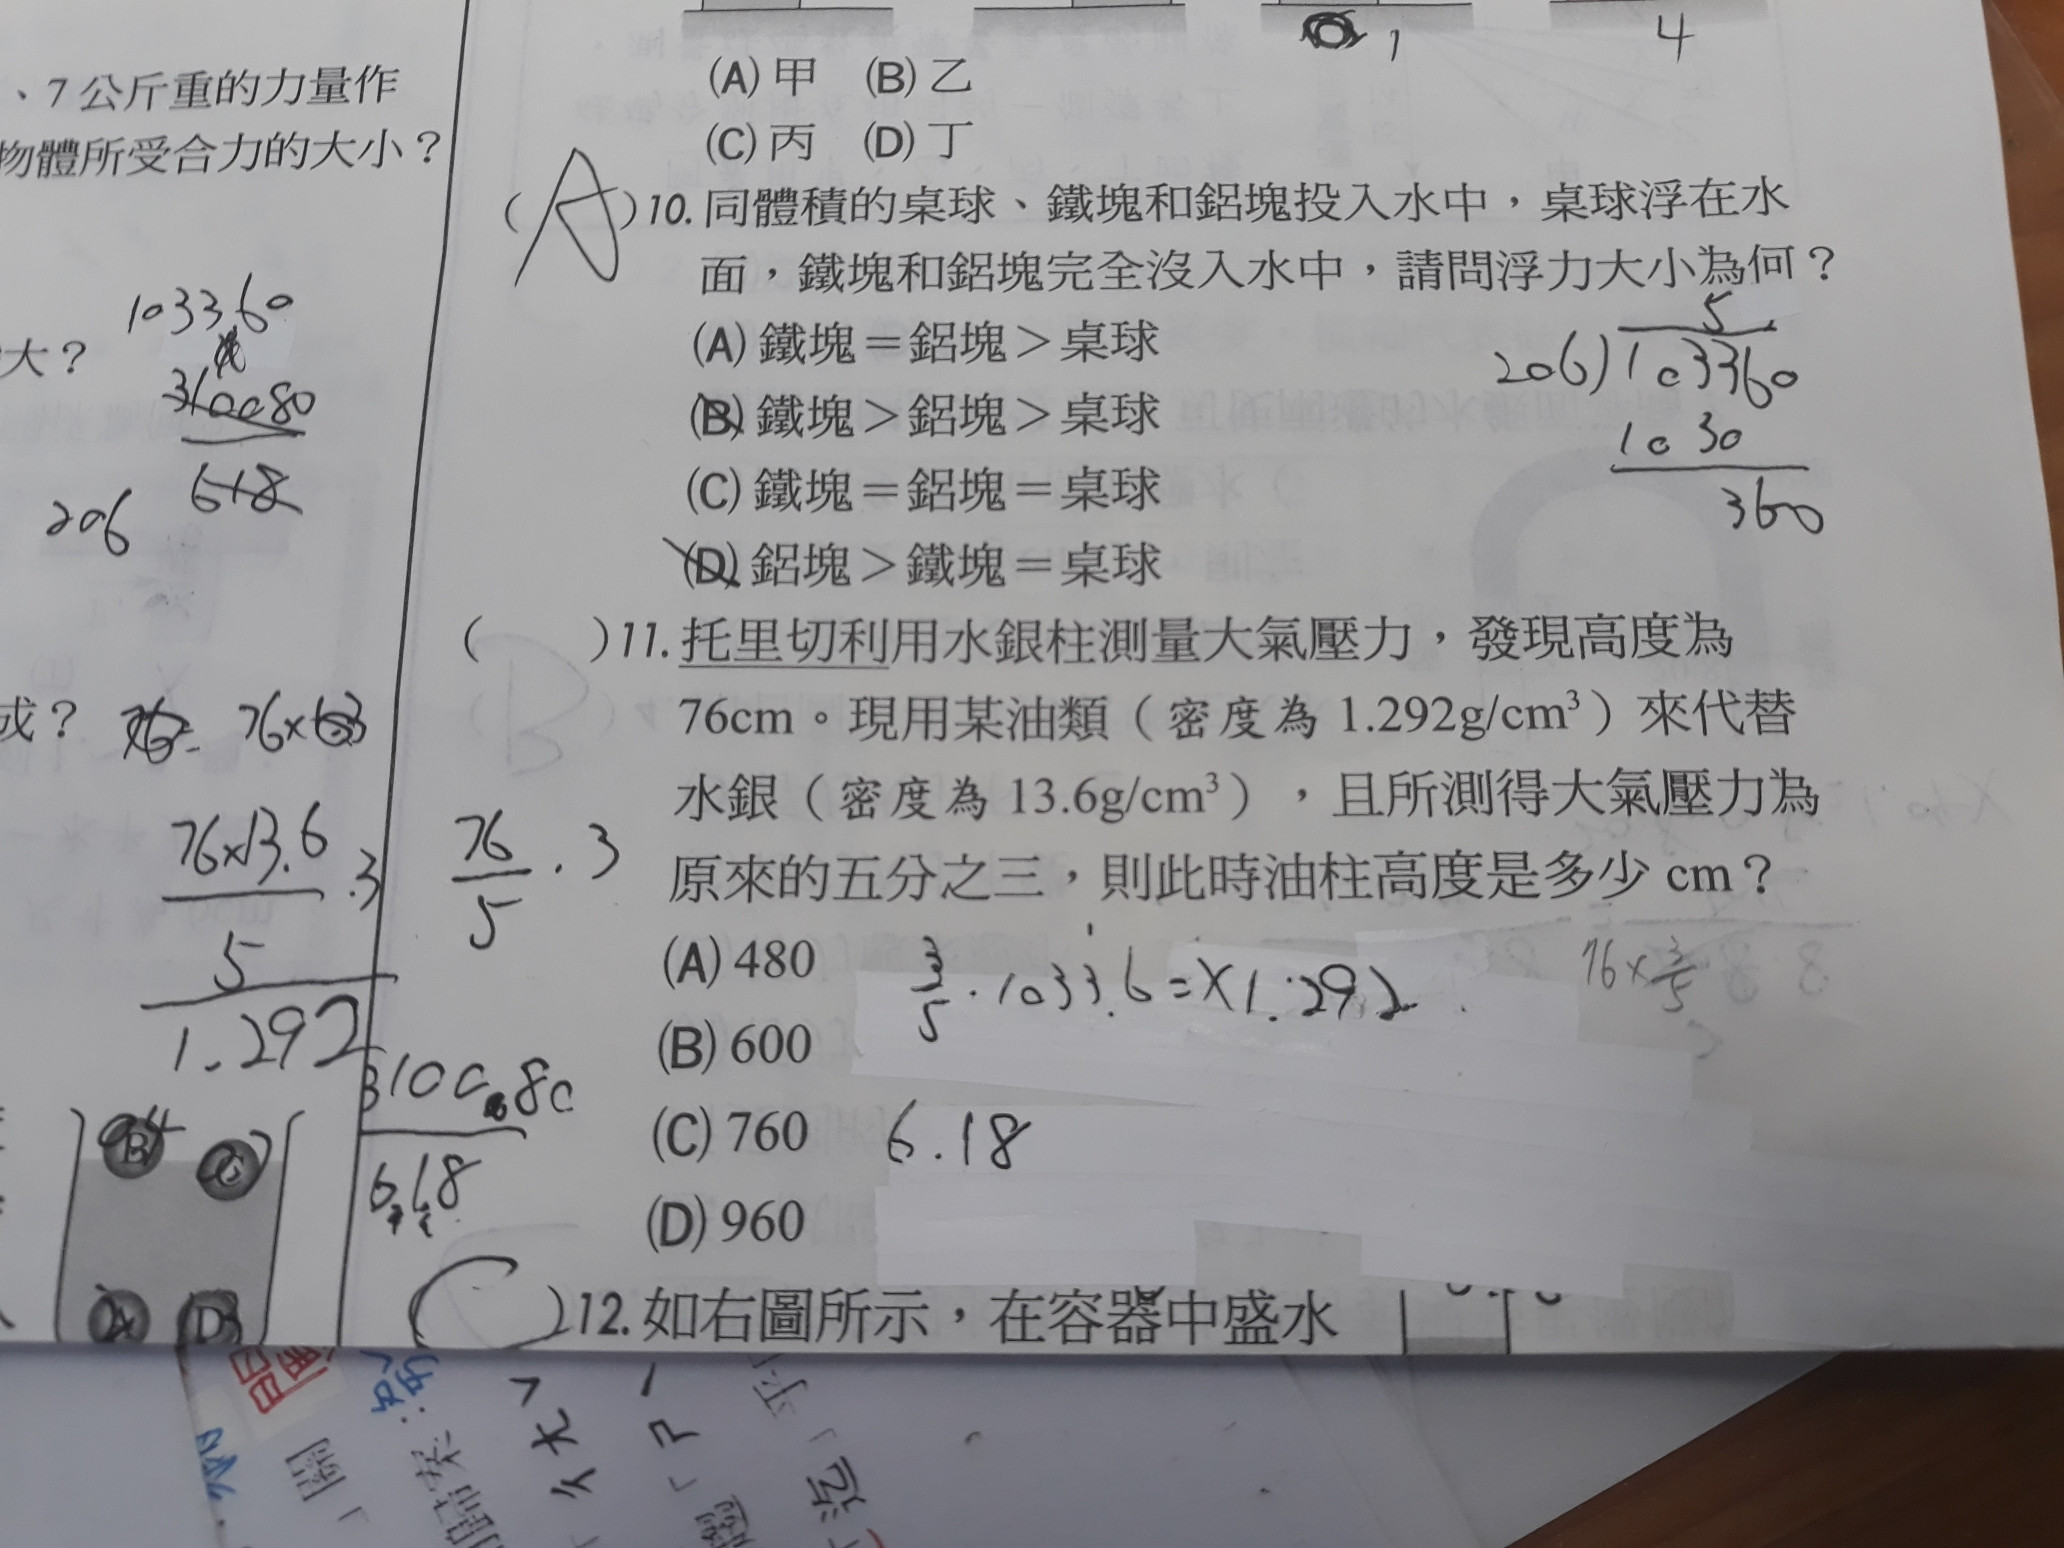 、7公斤重的力量作
物體所受合力的大小？
大？
103360
310080
618
206
或？
76×13.6
.3
5
1.292
310080
6.18
76
.3
5
1
4
(A)甲 (B)乙
(C)丙 (D)丁
(A)10.同體積的桌球、鐵塊和鋁塊投入水中，桌球浮在水
面，鐵塊和鋁塊完全沒入水中，請問浮力大小為何？
(A)鐵塊＝鋁塊＞桌球
(B)鐵塊＞鋁塊＞桌球
(C)鐵塊＝鋁塊＝桌球
(D)鋁塊＞鐵塊＝桌球
5
206)103360
1030
360
( )11.托里切利用水銀柱測量大氣壓力，發現高度為
76cm。現用某油類（密度為1.292g/cm³）來代替
水銀（密度為13.6g/cm³），且所測得大氣壓力為
原來的五分之三，則此時油柱高度是多少cm？
(A)480
(B)600
(C)760
(D)960
3/5·1033.6=X1.292
76×3/5
6.18
(C)12.如右圖所示，在容器中盛水